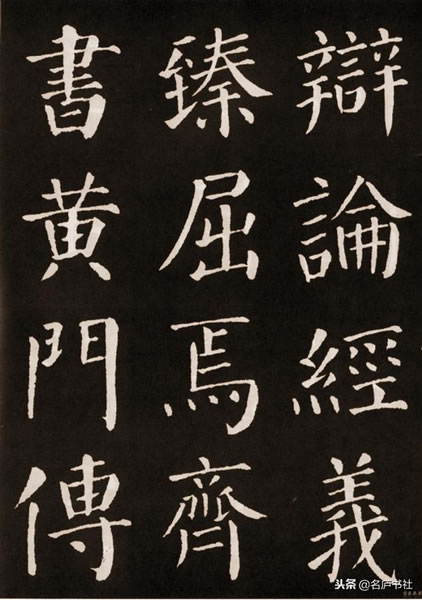 辯論經義
臻屈焉齊
書黄門傳
头条 @名庐书社